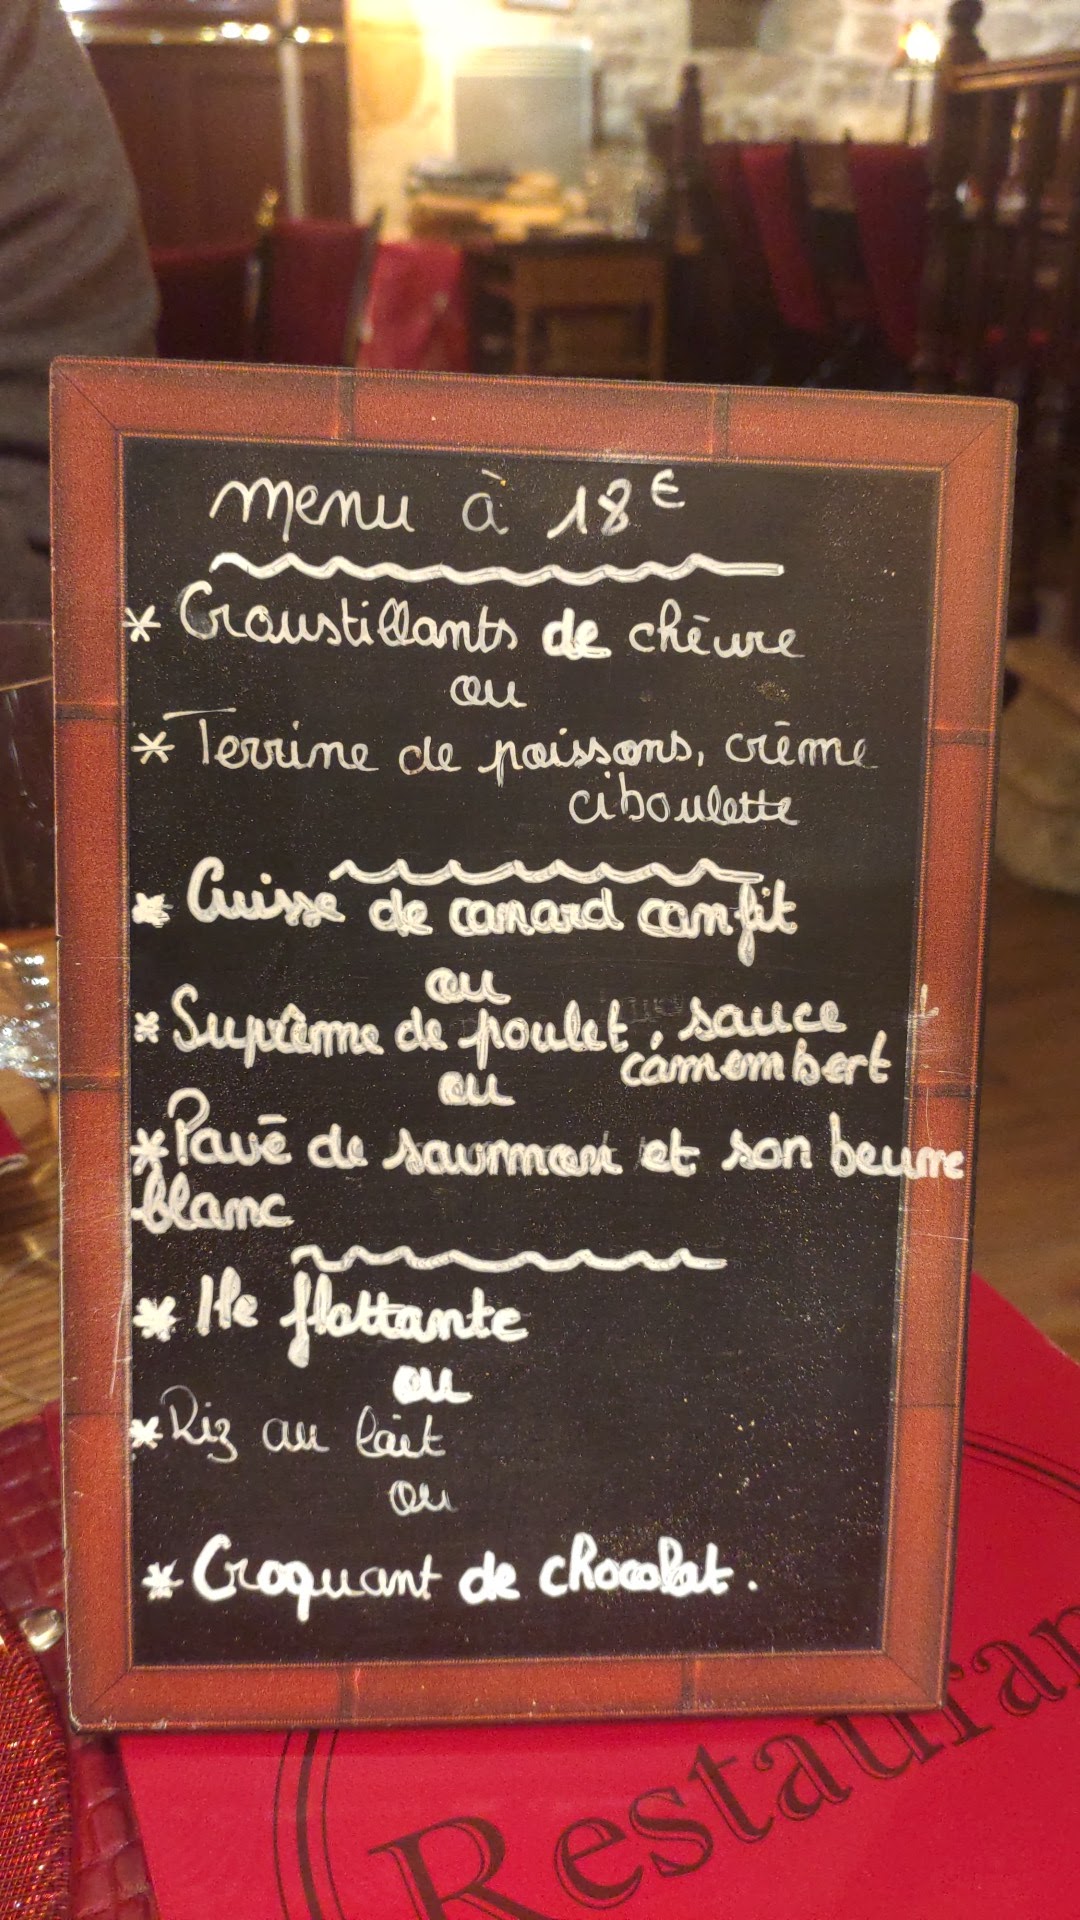 menu à 18€
* Croustillants de chèvre
ou
* Terrine de poissons, crème
ciboulette
* Cuisse de canard confit
ou
* Suprême de poulet, sauce
camembert
ou
* Pavé de saumon et son beurre
blanc
* Ile flottante
ou
* Riz au lait
ou
* Croquant de chocolat.
Restauran